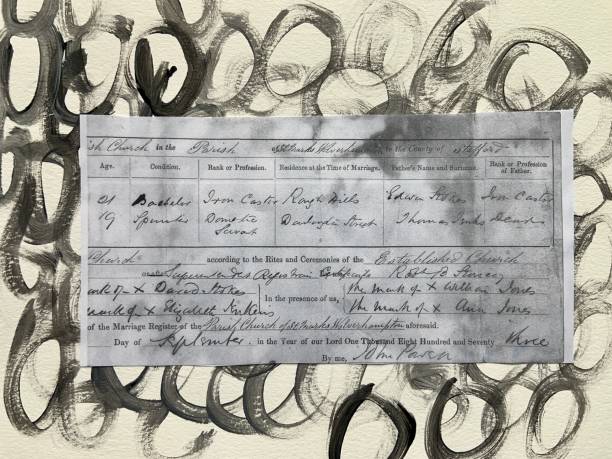 ish Church in the Parish St Marks Wolverhampton in the County of Stafford
Age. Condition. Rank or Profession. Residence at the Time of Marriage. Father's Name and Surname. Rank or Profession of Father.
21 Bachelor Iron Caster Rough Hills Edwin Stokes Iron Caster
19 Spinster Domestic Servant Street Thomas
Church according to the Rites and Ceremonies of the Established Church
Superintendent Registrar
mark of X David Stokes In the presence of us, the mark of X William Jones
mark of X Elizabeth the mark of X Ann Jones
of the Marriage Register of the Parish Church of St Marks Wolverhampton aforesaid.
Day of September in the Year of our Lord One Thousand Eight Hundred and Seventy three
By me, John